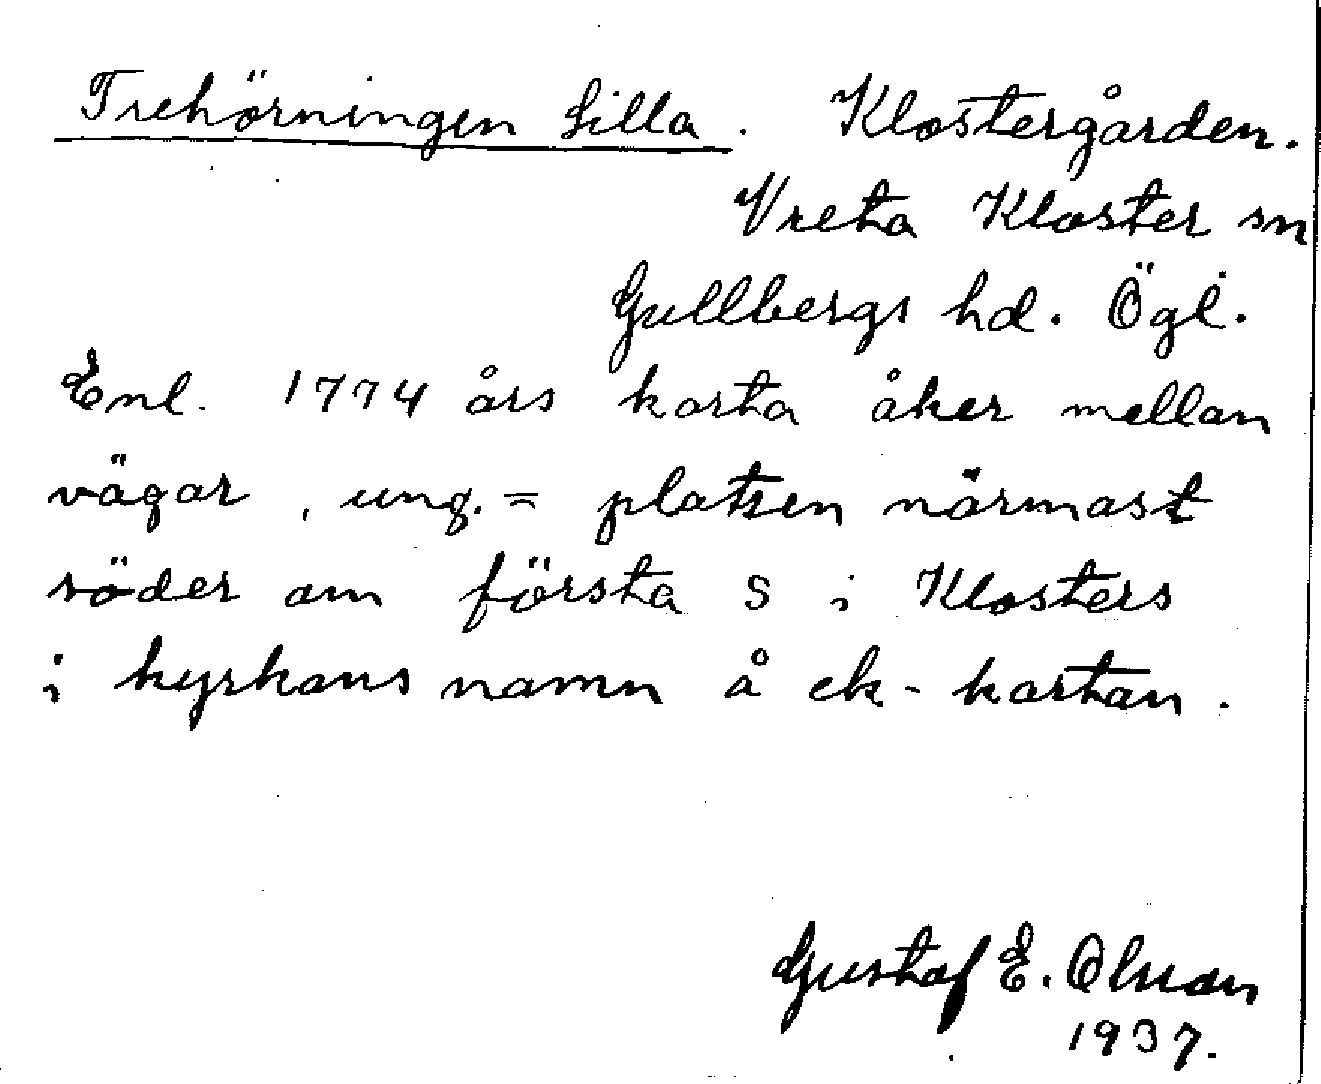 Trehörningen Lilla. Klostergården.
Vreta Kloster sn
Gullbergs hd. Ögl.
Enl. 1774 års karta åker mellan
vägar, ung. = platsen närmast
söder om första s i Klosters
i kyrkans namn å ek-kartan.
Gustaf E. Olson
1937.